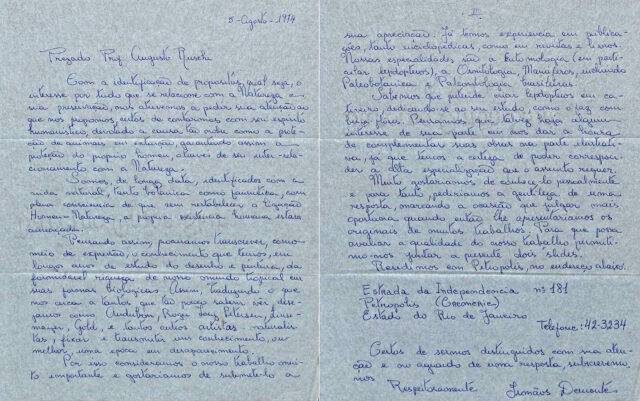 5-Agosto-1974
Prezado Prof. Augusto Ruschi
Com a identificação de propósitos, qual seja, o
interesse por tudo que se relacione com a Natureza e
sua preservação, nos atrevemos a pedir sua atenção ao
que nos propomos, certos de contarmos com seu espírito
humanístico, devotado a causa tão nobre como a prote-
ção de animais em extinção, garantindo assim a
proteção do próprio homem, através de seu inter-rela-
cionamento com a Natureza.
Somos, de longa data, identificados com a
vida natural, tanto botânica como faunística, com
plena consciência de que sem restabelecer a ligação
Homem-Natureza, a própria existência humana estará
ameaçada.
Pensando assim, procuramos transcrever, como
meio de expressão, o conhecimento que temos, em
longos anos de estudo do desenho e pintura, da
formidável riqueza de nosso mundo tropical em
suas formas biológicas. Assim, traduzindo o que
nos cerca a tantos que tão pouco sabem ver, dese-
jamos como Audubon, Roger Tory Peterson,
Gold, e tantos outros artistas naturalis-
tas, fixar e transmitir um conhecimento, ou
melhor, uma época em desaparecimento.
Por isso consideramos o nosso trabalho mui-
to importante e gostaríamos de submetê-lo a
II
sua apreciação. Já temos experiência em publica-
ções, tanto enciclopédicas, como em revistas e livros.
Nossas especialidades são a Entomologia (em parti-
cular lepidoptera), a Ornitologia, Mamíferos, incluindo
Paleobotânica e Paleontologia, brasileiras.
Sabemos que pretende criar lepidoptera em ca-
tiveiro dedicando-se ao seu estudo, como o faz com
beija flores. Pensamos que talvez haja algum
interesse de sua parte em nos dar a honra
de complementar suas obras na parte ilustrati-
va, já que temos a certeza de poder correspon-
der à alta especialização que o assunto requer.
Muito gostaríamos de conhecê-lo pessoalmente
e para tanto, pediríamos a gentileza de uma
resposta, marcando a ocasião que julgar mais
oportuna quando então lhe apresentaríamos os
originais de muitos trabalhos. Para que possa
avaliar a qualidade do nosso trabalho permiti-
mo-nos juntar a presente dois slides.
Residimos em Petrópolis, no endereço abaixo.
Estrada da Independência nº 181
Petrópolis (Cremerie)
Estado do Rio de Janeiro
Telefone: 42-3234
Certos de sermos distinguidos com sua aten-
ção e no aguardo de uma resposta subscrevemo-
nos
Respeitosamente Irmãos Demonte